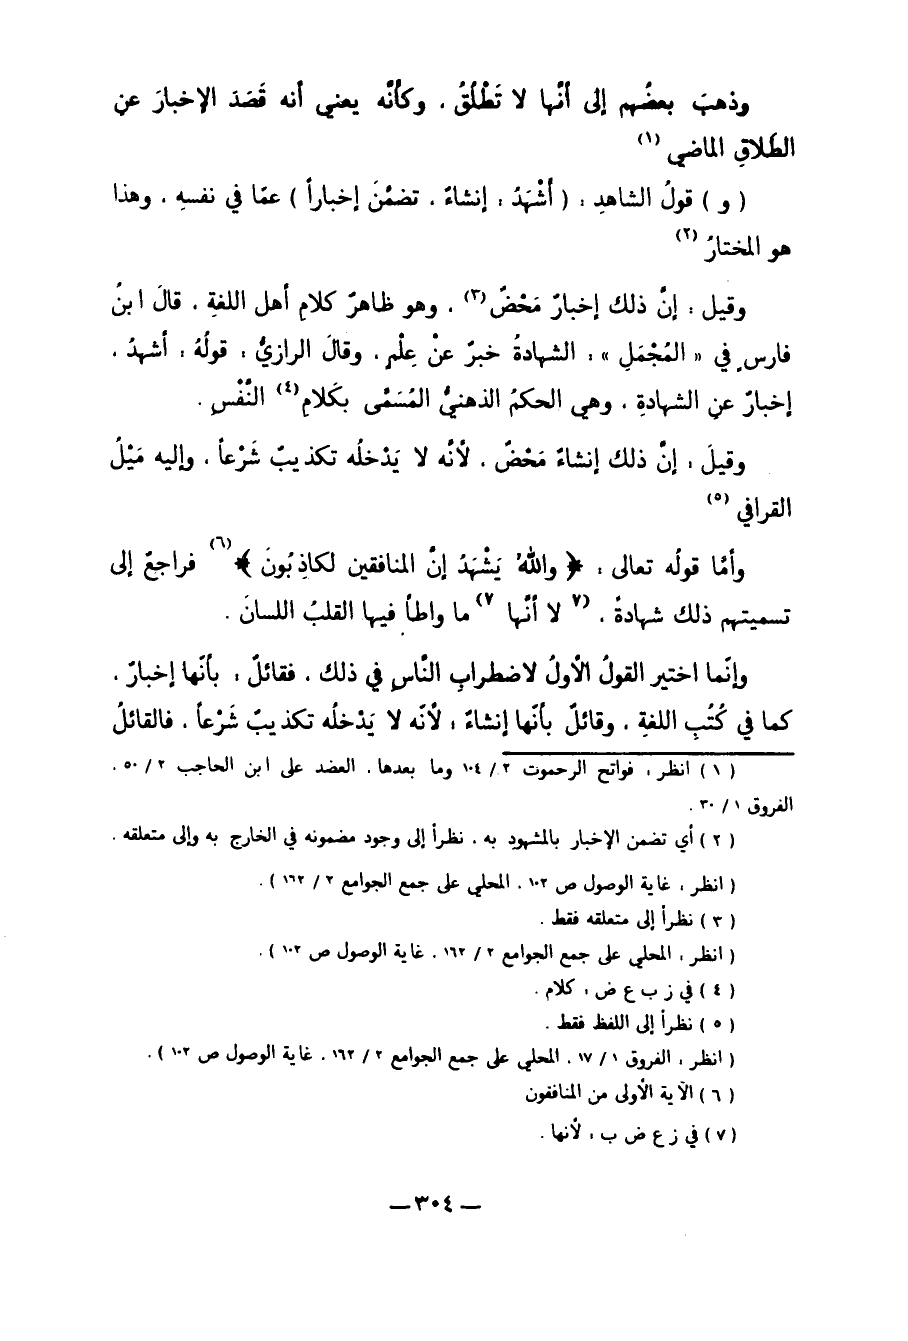 وذهبَ بعضُهم إلى أنَّها لا تَطْلُقُ ، وكأنَّه يعني أنه قَصَدَ الإخبارَ عنِ
الطَّلاقِ الماضي (١)
( و ) قولُ الشاهدِ : ( أَشْهَدُ : إنشاءٌ ، تضمَّنَ إخباراً ) عمَّا في نفسهِ ، وهذا
هو المختارُ (٢)
وقيل : إنَّ ذلك إخبارٌ مَحْضٌ (٣) ، وهو ظاهرُ كلامِ أهل اللغةِ ، قالَ ابنُ
فارسٍ في « المُجْمَلِ » : الشهادةُ خبرٌ عنْ عِلْمٍ ، وقالَ الرازيُّ : قولُهُ : أشهدُ ،
إخبارٌ عنِ الشهادةِ ، وهي الحكمُ الذهنيُّ المُسَمَّى بكَلامِ (٤) النَّفْسِ .
وقيلَ : إنَّ ذلك إنشاءٌ مَحْضٌ ، لأنَّه لا يَدْخلُه تكذيبٌ شَرْعاً ، وإليه مَيْلُ
القرافي (٥)
وأمَّا قولُه تعالى : ﴿ واللهُ يَشْهَدُ إنَّ المنافقين لكاذِبُونَ ﴾ (٦) فراجعٌ إلى
تسميتهم ذلك شهادةً ، (٧ لا أنَّها ٧) ما واطأ فيها القلبُ اللسانَ .
وإنَّما اختير القولُ الأولُ لاضطرابِ النَّاسِ في ذلك ، فقائلٌ : بأنَّها إخبارٌ ،
كما في كُتُبِ اللغةِ ، وقائلٌ بأنَّها إنشاءٌ ؛ لأنَّه لا يَدْخلُه تكذيبٌ شَرْعاً ، فالقائلُ
( ١ ) انظر : فواتح الرحموت ٢ / ١٠٤ وما بعدها ، العضد على ابن الحاجب ٢ / ٥٠ ،
الفروق ١ / ٣٠ .
( ٢ ) أي تضمن الإخبار بالمشهود به ، نظرأ إلى وجود مضمونه في الخارج به وإلى متعلقه .
( انظر : غاية الوصول ص ١٠٢ ، المحلي على جمع الجوامع ٢ / ١٦٢ ) .
( ٣ ) نظرأ إلى متعلقه فقط .
( انظر : المحلي على جمع الجوامع ٢ / ١٦٢ ، غاية الوصول ص ١٠٢ ) .
( ٤ ) في ز ب ع ض : كلام .
( ٥ ) نظرأ إلى اللفظ فقط .
( انظر : الفروق ١ / ١٧ ، المحلي على جمع الجوامع ٢ / ١٦٢ ، غاية الوصول ص ١٠٢ ) .
( ٦ ) الآية الأولى من المنافقون
( ٧ ) في ز ع ض ب : لأنها .
— ٣٠٤ —